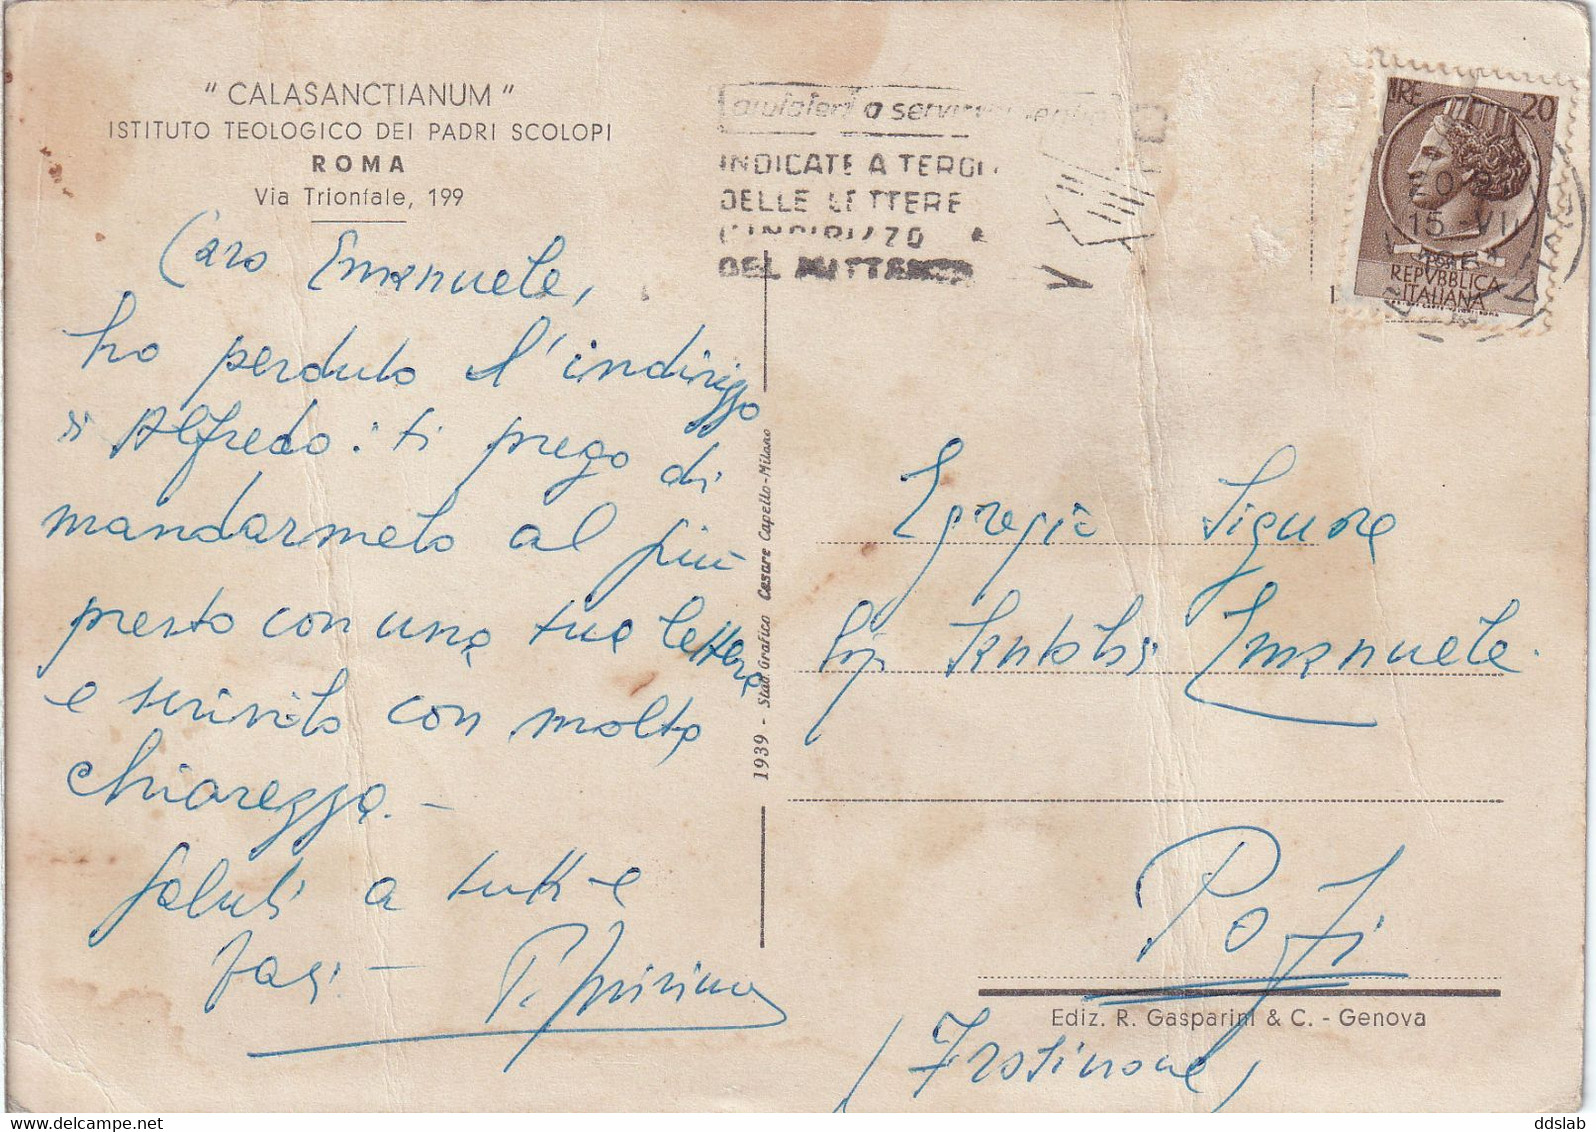 " CALASANCTIANUM "
ISTITUTO TEOLOGICO DEI PADRI SCOLOPI
ROMA
Via Trionfale, 199
Caro Emanuele,
ho perduto l'indirizzo
di Alfredo: ti prego di
mandarmelo al più
presto con una tua lettera
e scrivilo con molta
chiarezza. -
Saluti a tutti e
baci -
aiutateci a servirvi meglio
INDICATE A TERGO
DELLE LETTERE
L'INDIRIZZO
DEL MITTENTE
LIRE 20
15 - VII
REPVBBLICA
ITALIANA
1939 - Stab. Grafico Cesare Capello - Milano
Egregio Signore
Emanuele
Pofi
(Frosinone)
Ediz. R. Gasparini & C. - Genova
ddslab